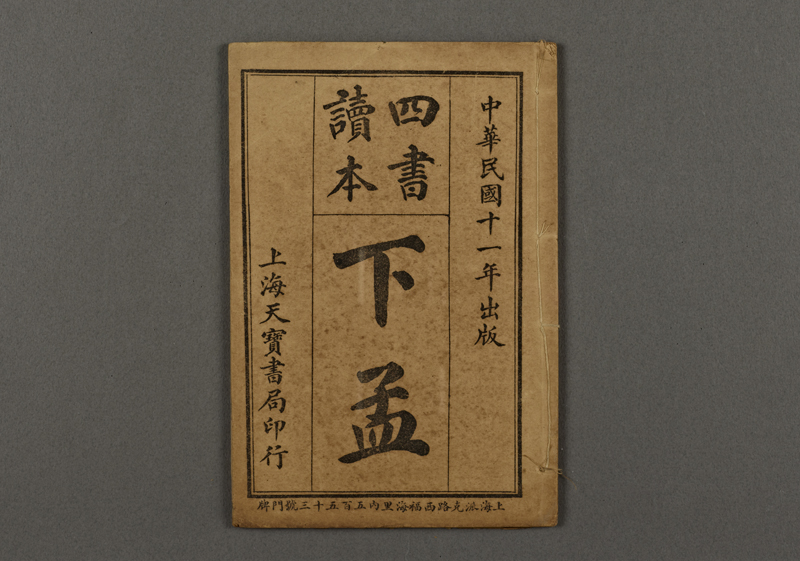 中華民國十一年出版
四書
讀本
下孟
上海天寶書局印行
上海派克路西福海里內五百五十三號門牌